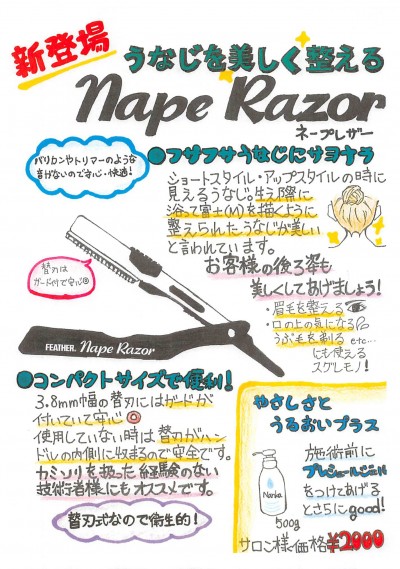 新登場
うなじを美しく整える
Nape Razor
ネープレザー
バリカンやトリマーのような
音がないので安心・快適!
●フサフサうなじにサヨナラ
ショートスタイル・アップスタイルの時に
見えるうなじ。生え際に
沿って富士(M)を描くように
整えられたうなじが美しい
と言われています。
お客様の後ろ姿も
美しくしてあげましょう!
・眉毛を整える
・口の上の気になる
うぶ毛を剃る etc...
にも使える
スグレモノ!
替刃は
ガード付で安心◎
FEATHER. Nape Razor
●コンパクトサイズで便利!
3.8mm幅の替刃にはガードが
付いていて安心◎
使用していない時は替刃がハン
ドルの内側に収まるので安全です。
カミソリを扱った経験のない
技術者様にもオススメです。
替刃式なので衛生的!
やさしさと
うるおいプラス
施術前に
プレシェールジェル
をつけてあげる
とさらにgood!
500g
サロン様価格 ¥2900